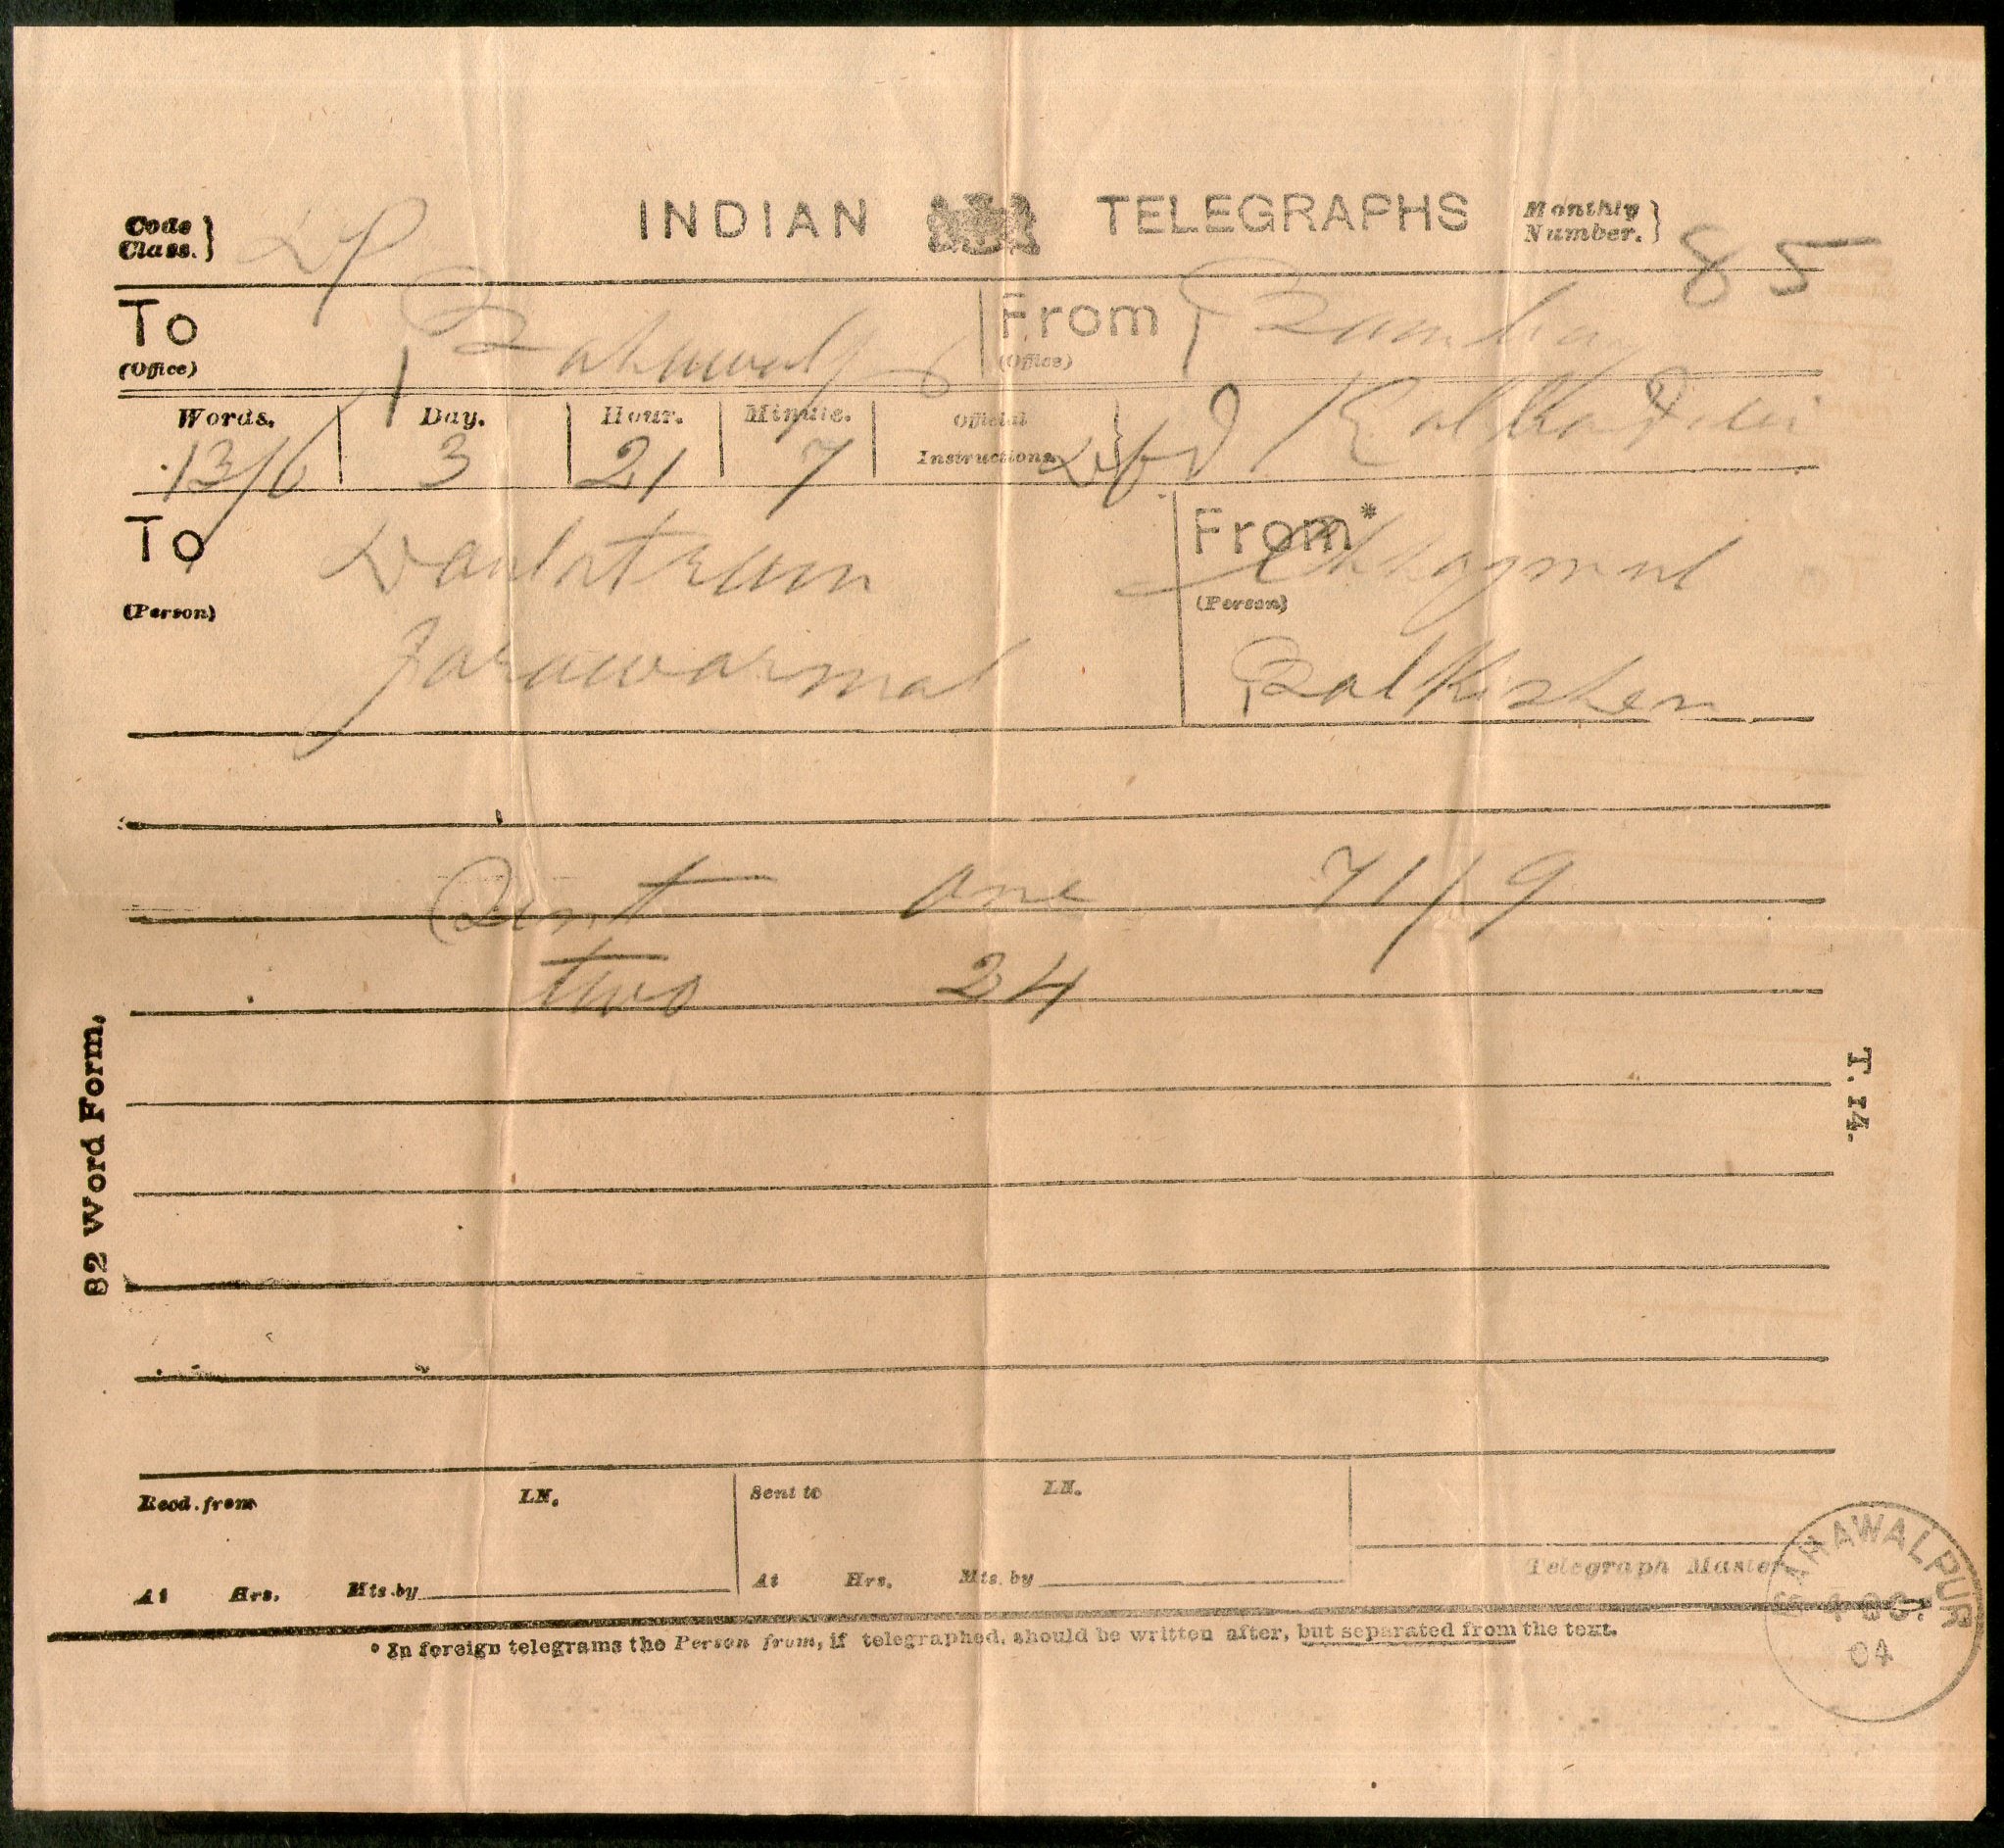 INDIAN TELEGRAPHS
Code Class.}
Monthly Number.} 85
To (Office)
From (Office) Bombay
Kalkadevi
Words. Day. Hour. Minute. Official Instructions
13/6 3 21 7
To (Person) Daulatram
Jarawarmal
From* (Person)
Balkishen
one 71/9
two 24
32 Word Form.
T. 14.
Recd. from LN. Sent to LN.
At Hrs. Mts. by At Hrs. Mts. by
Telegraph Master
* In foreign telegrams the Person from, if telegraphed, should be written after, but separated from the text.
BAHAWALPUR
04